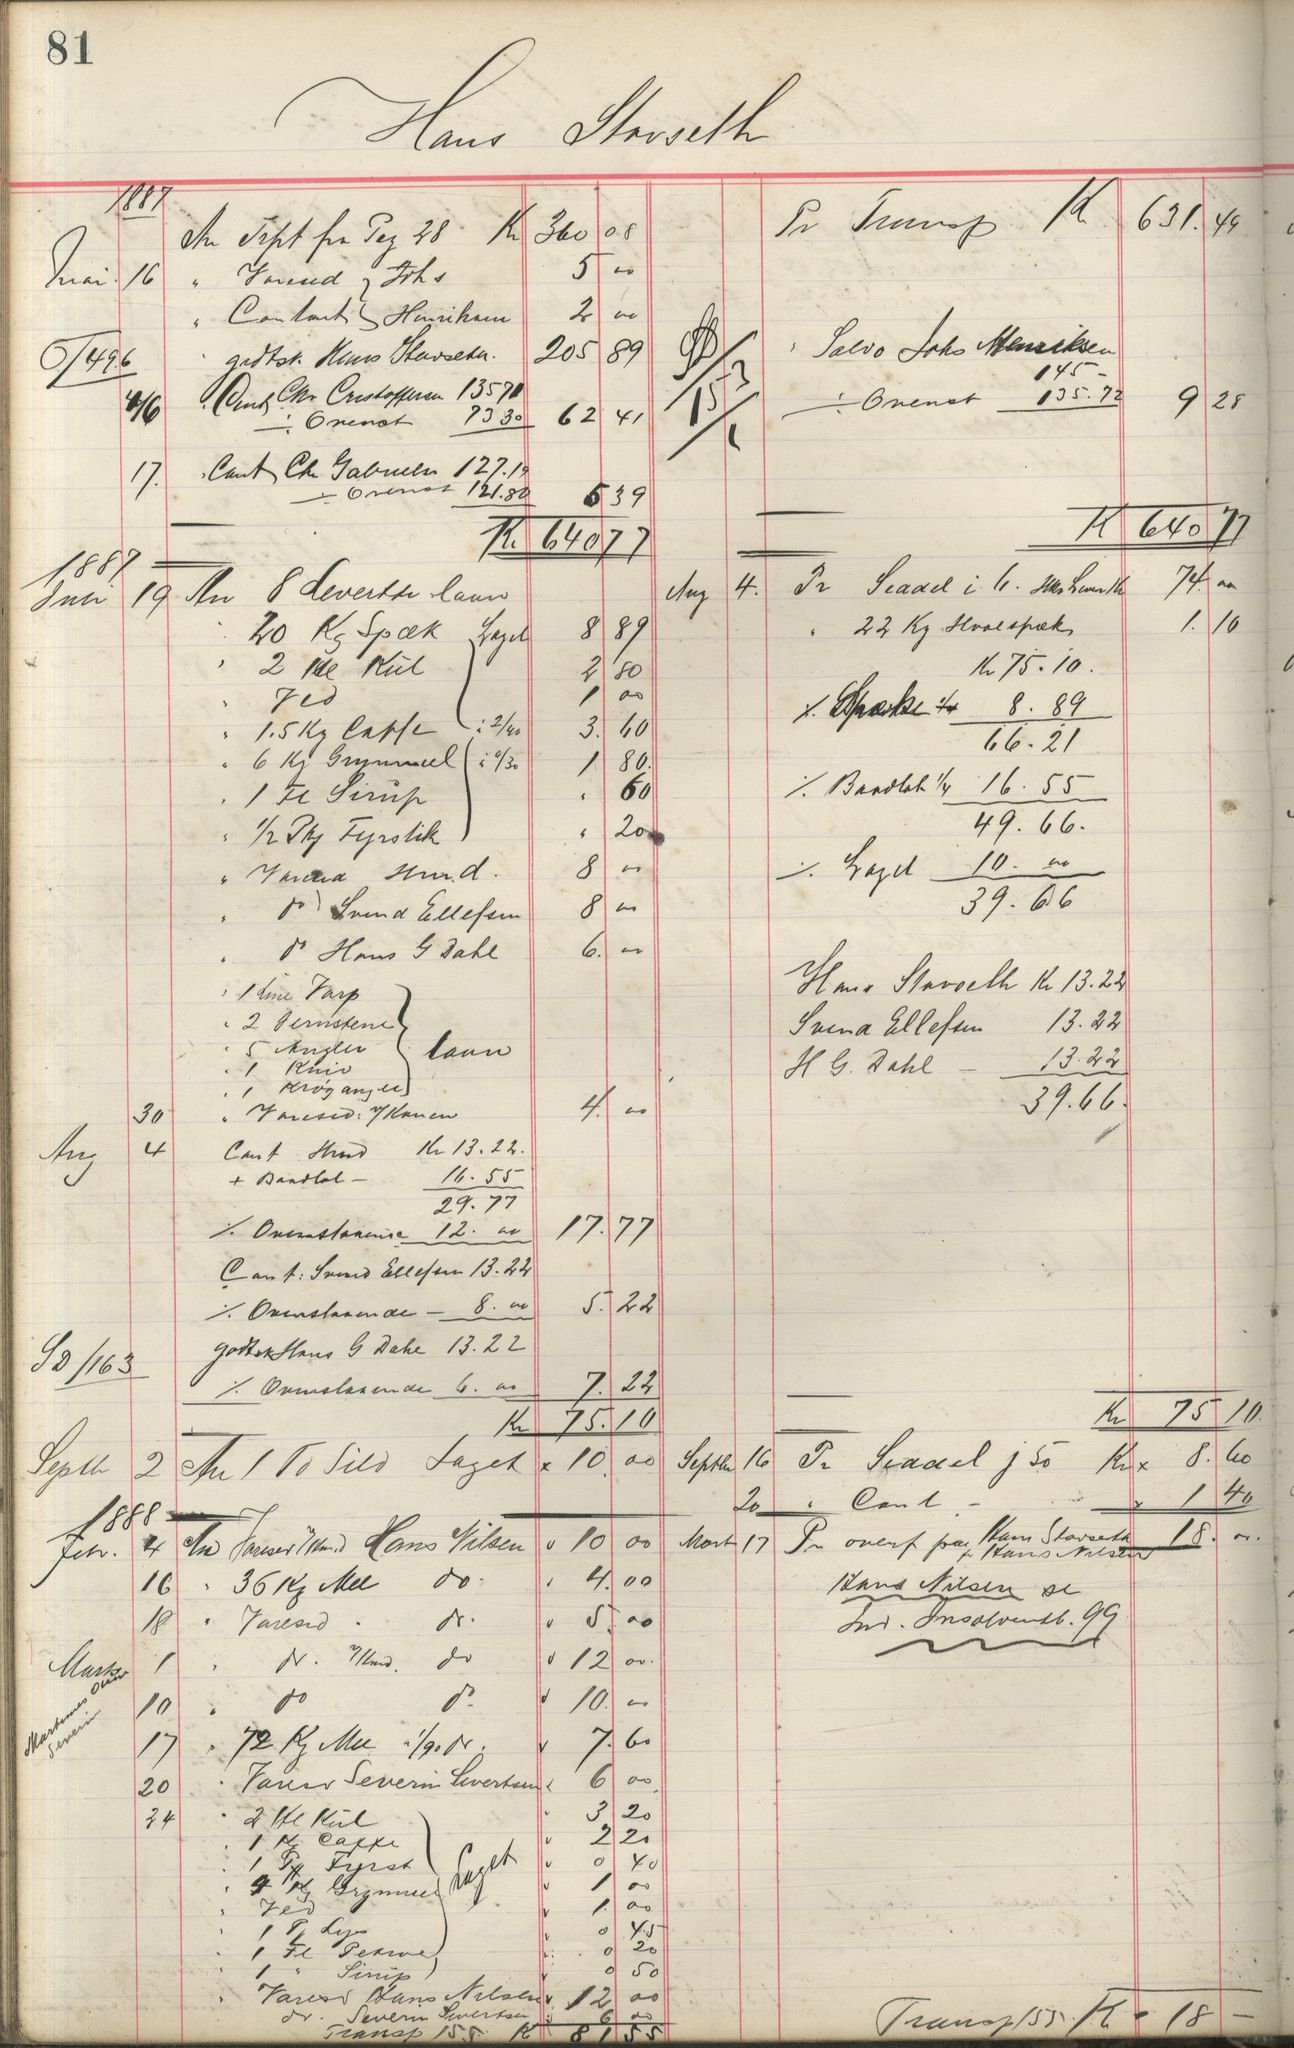 81
Hans Stavseth
1887
An Trpt fra Pag 28 Kr 360 08
Mai 16 " Varesed } Johs 5 00
" Contant } Henriksen 2 00
O/496 " godtsk Hans Stavseth 205 89
4/6 " Cont Chr Cristoffersen 135 71
÷ Ovenst 73 30 62 41
17. " Cont Chr Gabrielsn 127.19
÷ Ovenst 121.80 5 39
Kr 640 77
Pr Transp K 631.49
" Saldo Johs Henriksen
145 -
÷ Ovenst 135.72 9 28
K 640 77
1887
Juli 19 An 8 Levertse laan
" 20 Kg Spæk } Laget 8 89
" 2 Hl Kul 2 80
" Ved 1 00
" 1.5 Kg Caffe i 2/40 3.60
" 6 Kg Grynmeel i 0/30 1 80.
" 1 Fl Sirup " 60
" 1/2 Pkg Fyrstik " 20
" Varesed Hmd. 8 00
" do Svend Ellefsen 8 00
" do Hans G Dahl 6. 00
" 1 Line Varp
" 2
" 5 Angler } laan
" 1 Kniv
" 1 Krogangel
30 " Varesed: Konen 4. 00
Aug 4 Cant Hmd Kr 13.22.
+ Baadlot - 16.55
29.77
% Ovenstaaende 12. 00 17.77
Cant: Svend Ellefsen 13.22
% Ovenstaaende - 8. 00 5. 22
SD/163 godtsk Hans G Dahl 13.22
% Ovenstaaende 6. 00 7. 22
Kr 75.10
Aug 4. Pr Seddel i 74. 00
" 22 Kg Hvalspæk 1. 10
Kr 75.10.
% Spækk 8. 89
66.21
% Baadlot 1/4 16.55
49.66.
% Laget 10. 00
39.66
Hans Stavseth Kr 13.22
Svend Ellefsen 13.22
H G. Dahl - 13.22
39.66.
Kr 75 10.
Septb 2 An 1 To Sild Laget x 10. 00
Septbr 16 Pr Seddel j 50 Kr x 8. 60
20 " Cant - x 1 40
1888
Febr. 4 An Varesed Hmd Hans Nilsen v 10 00
16 " 36 Kg Mel do v 4. 00
18 " Varesed " do. v 5. 00
Marts 1 " do. Hmd. do v 12 00.
10 " do do v 10. 00
Severin
17 " 72 Kg Mel i/90 do. v 7. 60
20 " Varesed Severin Sivertsen v 6 00
24 " 2 Hl Kul v 3 20
" 1 Kg Caffe v 2 20
" 1 Pk Fyrst v 0 40
" 4 Kg Grynmeel } Laget v 1 00
" Ved v 1. 00
" 1 Pk Lys 0 45
" 1 Fl 0 20
" 1 " Sirup v 0 50
" Varesed Hans Nilsen v 12 00
do. Severin Sivertsen 6 00
Transp 155 K 81 55
Mart 17 Pr overf fra Hans Stavseth
f Hans Nilsen 18. 00.
Hans Nilsen se
Ind. Insolventb. 99
Transp 155. K 18 -